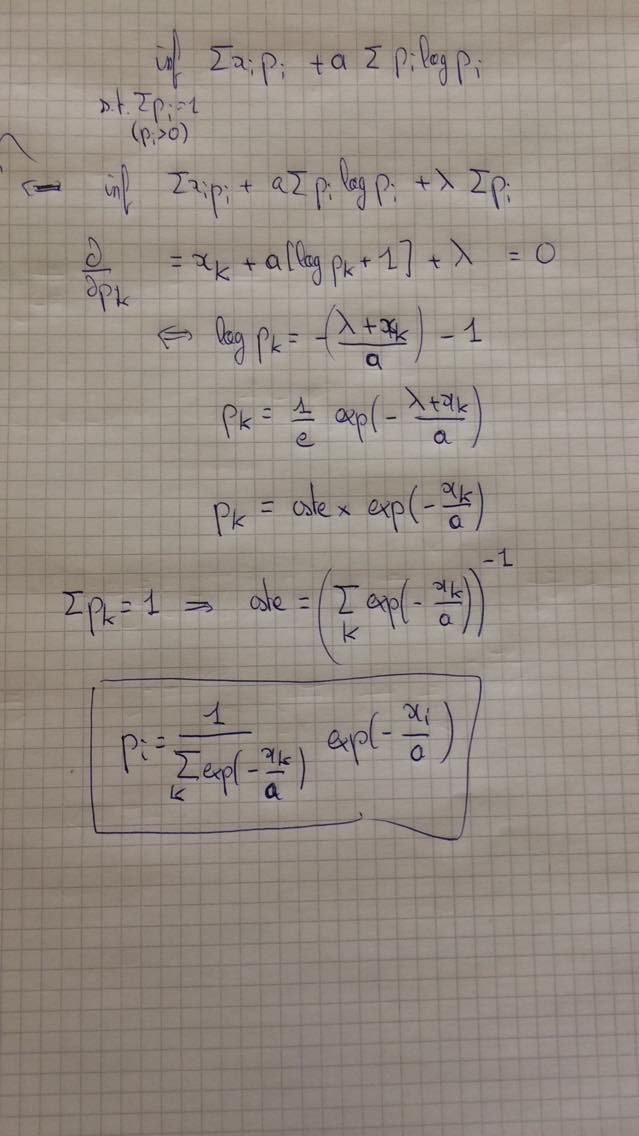 inf Σxᵢpᵢ + a Σ pᵢ log pᵢ
s.t. Σpᵢ=1
(pᵢ>0)
⟺ inf Σxᵢpᵢ + aΣpᵢ log pᵢ + λ Σpᵢ
∂/∂pₖ = xₖ + a[log pₖ + 1] + λ = 0
⟺ log pₖ = -((λ+xₖ)/a) - 1
pₖ = 1/e exp(-(λ+xₖ)/a)
pₖ = cste × exp(-xₖ/a)
Σpₖ = 1 ⇒ cste = (Σₖ exp(-xₖ/a))⁻¹
pᵢ = 1/(Σₖ exp(-xₖ/a)) exp(-xᵢ/a)